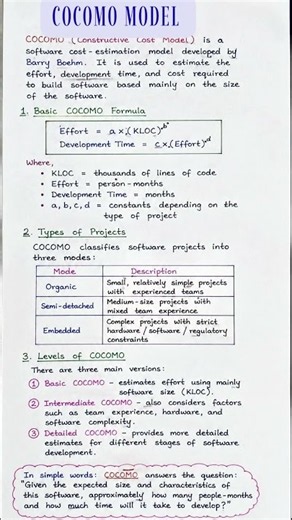 COCOMO MODEL
COCOMO (Constructive Cost Model) is a
software cost-estimation model developed by
Barry Boehm. It is used to estimate the
effort, development time, and cost required
to build software based mainly on the size
of the software.
1. Basic COCOMO Formula
Effort = a × (KLOC)^b
Development Time = c × (Effort)^d
Where,
• KLOC = thousands of lines of code
• Effort = person-months
• Development Time = months
• a, b, c, d = constants depending on the
type of project
2. Types of Projects
COCOMO classifies software projects into
three modes:
Mode Description
Organic Small, relatively simple projects
with experienced teams
Semi-detached Medium-size projects with
mixed team experience
Embedded Complex projects with strict
hardware/software/regulatory
constraints
3. Levels of COCOMO
There are three main versions:
① Basic COCOMO - estimates effort using mainly
software size (KLOC).
② Intermediate COCOMO - also considers factors
such as team experience, hardware, and
software complexity.
③ Detailed COCOMO - provides more detailed
estimates for different stages of software
development.
In simple words: COCOMO answers the question:
"Given the expected size and characteristics of
this software, approximately how many people-months
and how much time will it take to develop?"